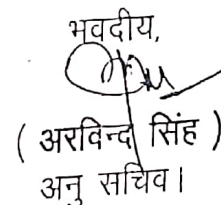 भवदीय,
( अरविन्द सिंह )
अनु सचिव।